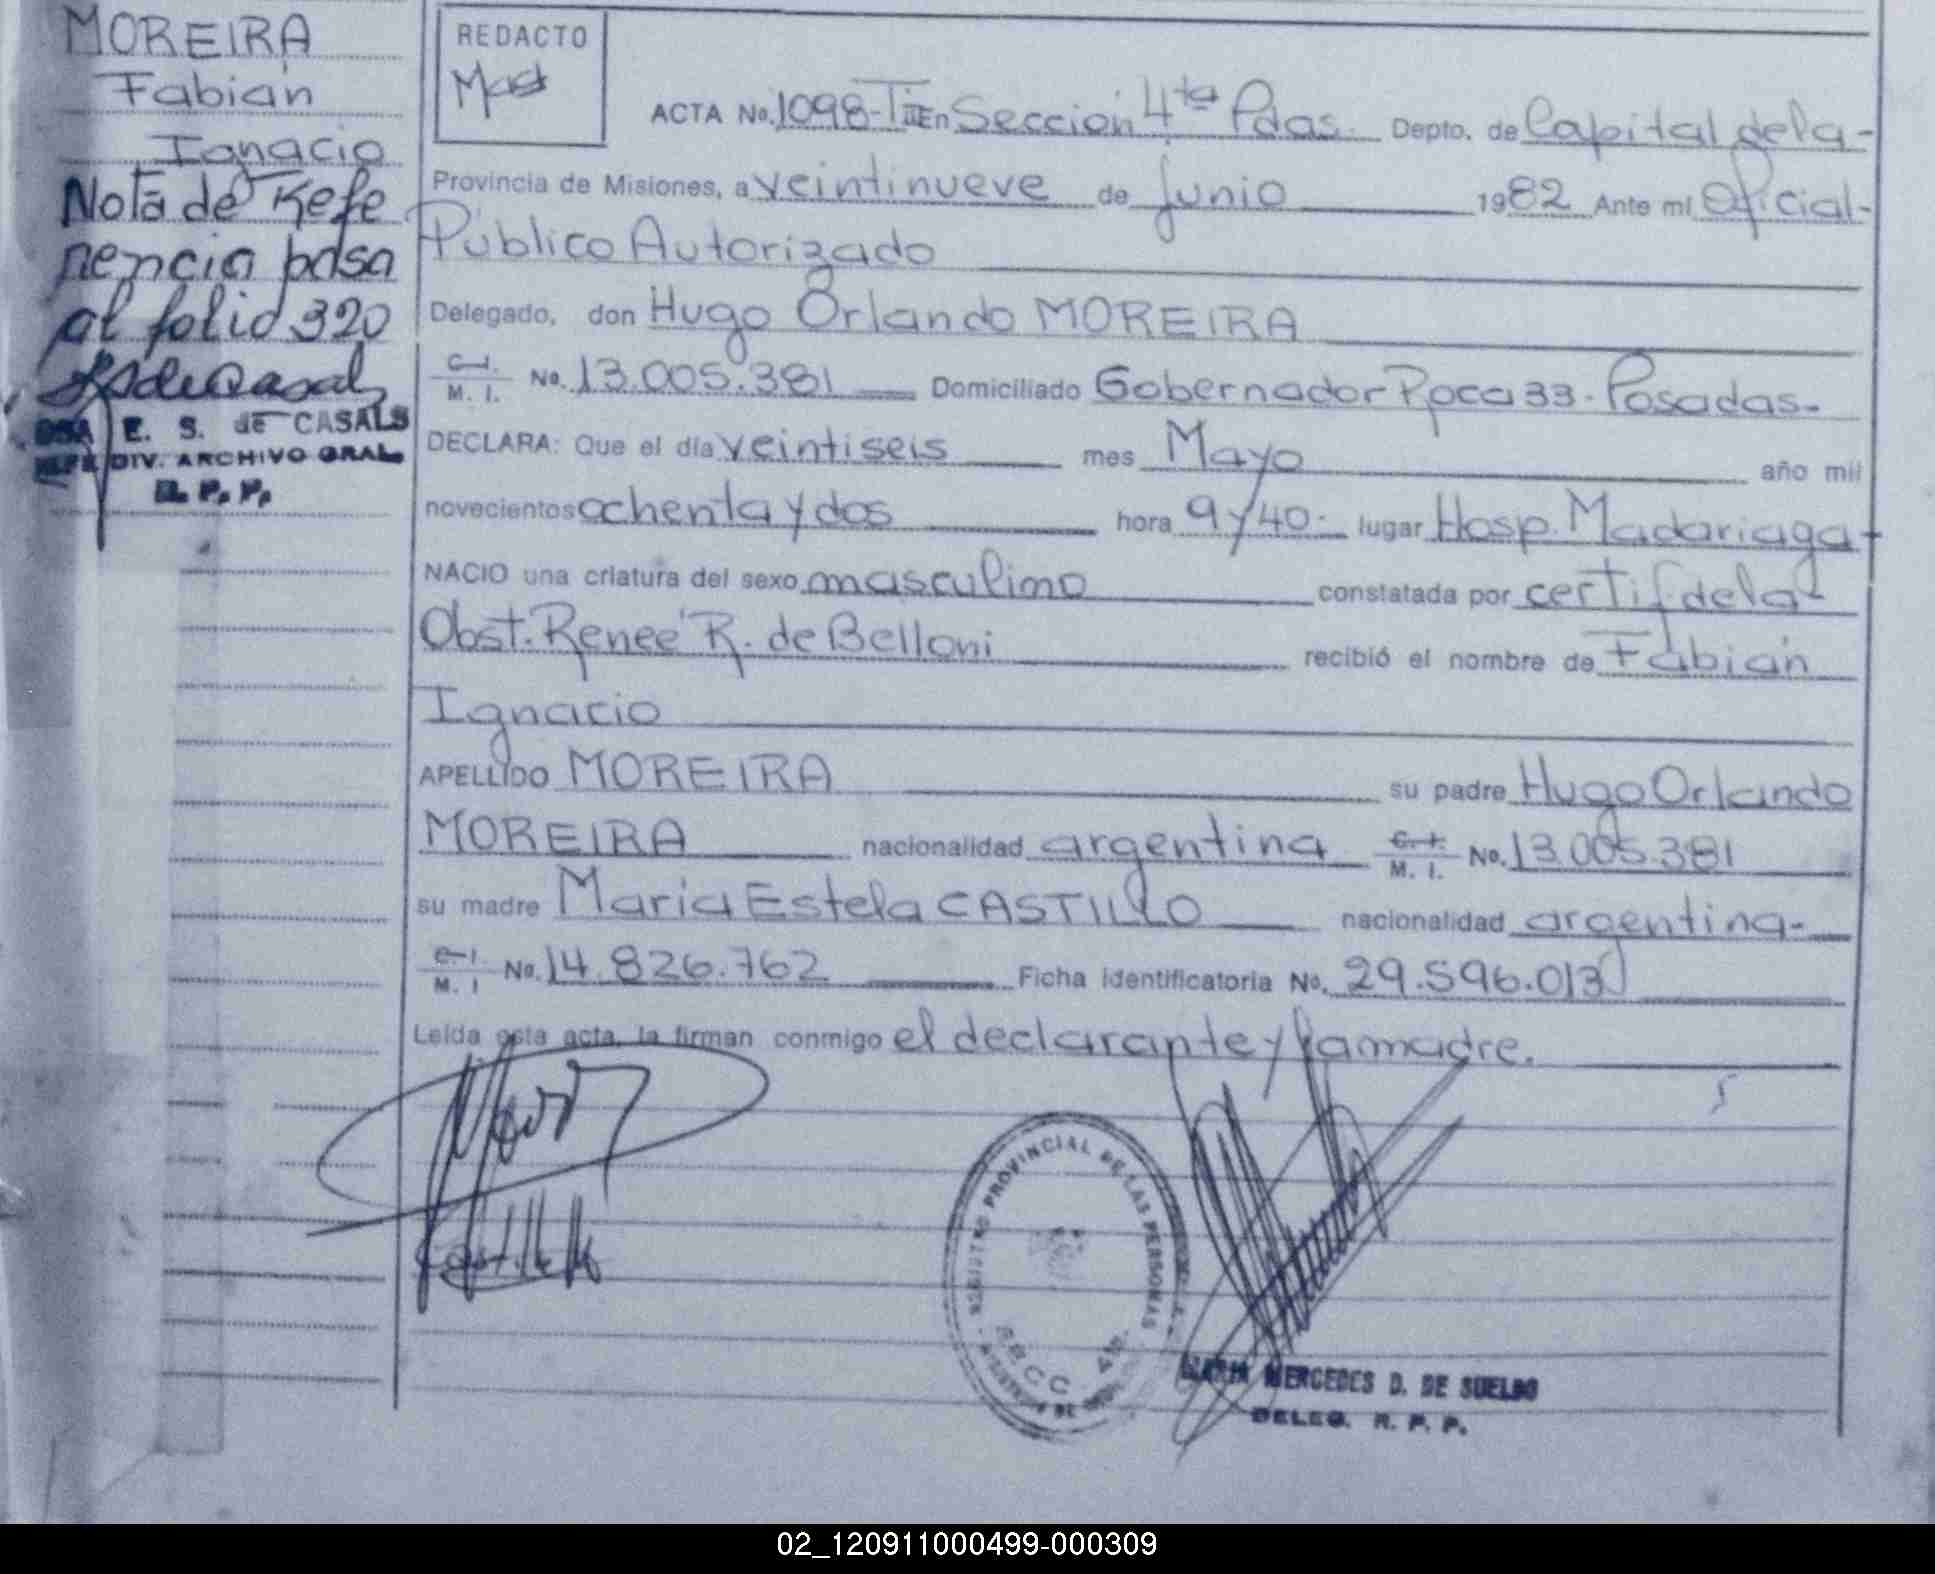 MOREIRA
Fabián
Ignacio
Nota de Refe
rencia pasa
al folio 320
E. S. de CASALS
JEFE DIV. ARCHIVO GRAL.
R. P. P.
REDACTO
ACTA No. 1098-T En Sección 4ta Pdas. Depto. de Capital de la-
Provincia de Misiones, a veintinueve de junio 1982 Ante mi Oficial-
Público Autorizado
Delegado, don Hugo Orlando MOREIRA
C.I. M. I. No. 13.005.381 Domiciliado Gobernador Roca 33 - Posadas-
DECLARA: Que el día veintiseis mes Mayo año mil
novecientos ochenta y dos hora 9 y 40- lugar Hosp. Madariaga-
NACIO una criatura del sexo masculino constatada por certif. de la
Obst. Renee R. de Belloni recibió el nombre de Fabián
Ignacio
APELLIDO MOREIRA su padre Hugo Orlando
MOREIRA nacionalidad argentina C.I. M. I. No. 13.005.381
su madre María Estela CASTILLO nacionalidad argentina-
C.I. M. I No. 14.826.762 Ficha identificatoria No. 29.596.013
Leída esta acta, la firman conmigo el declarante y la madre.
REGISTRO PROVINCIAL DE LAS PERSONAS
SECC. 4ta.
MARIA MERCEDES D. DE SUELDO
DELEG. R. P. P.
02_120911000499-000309